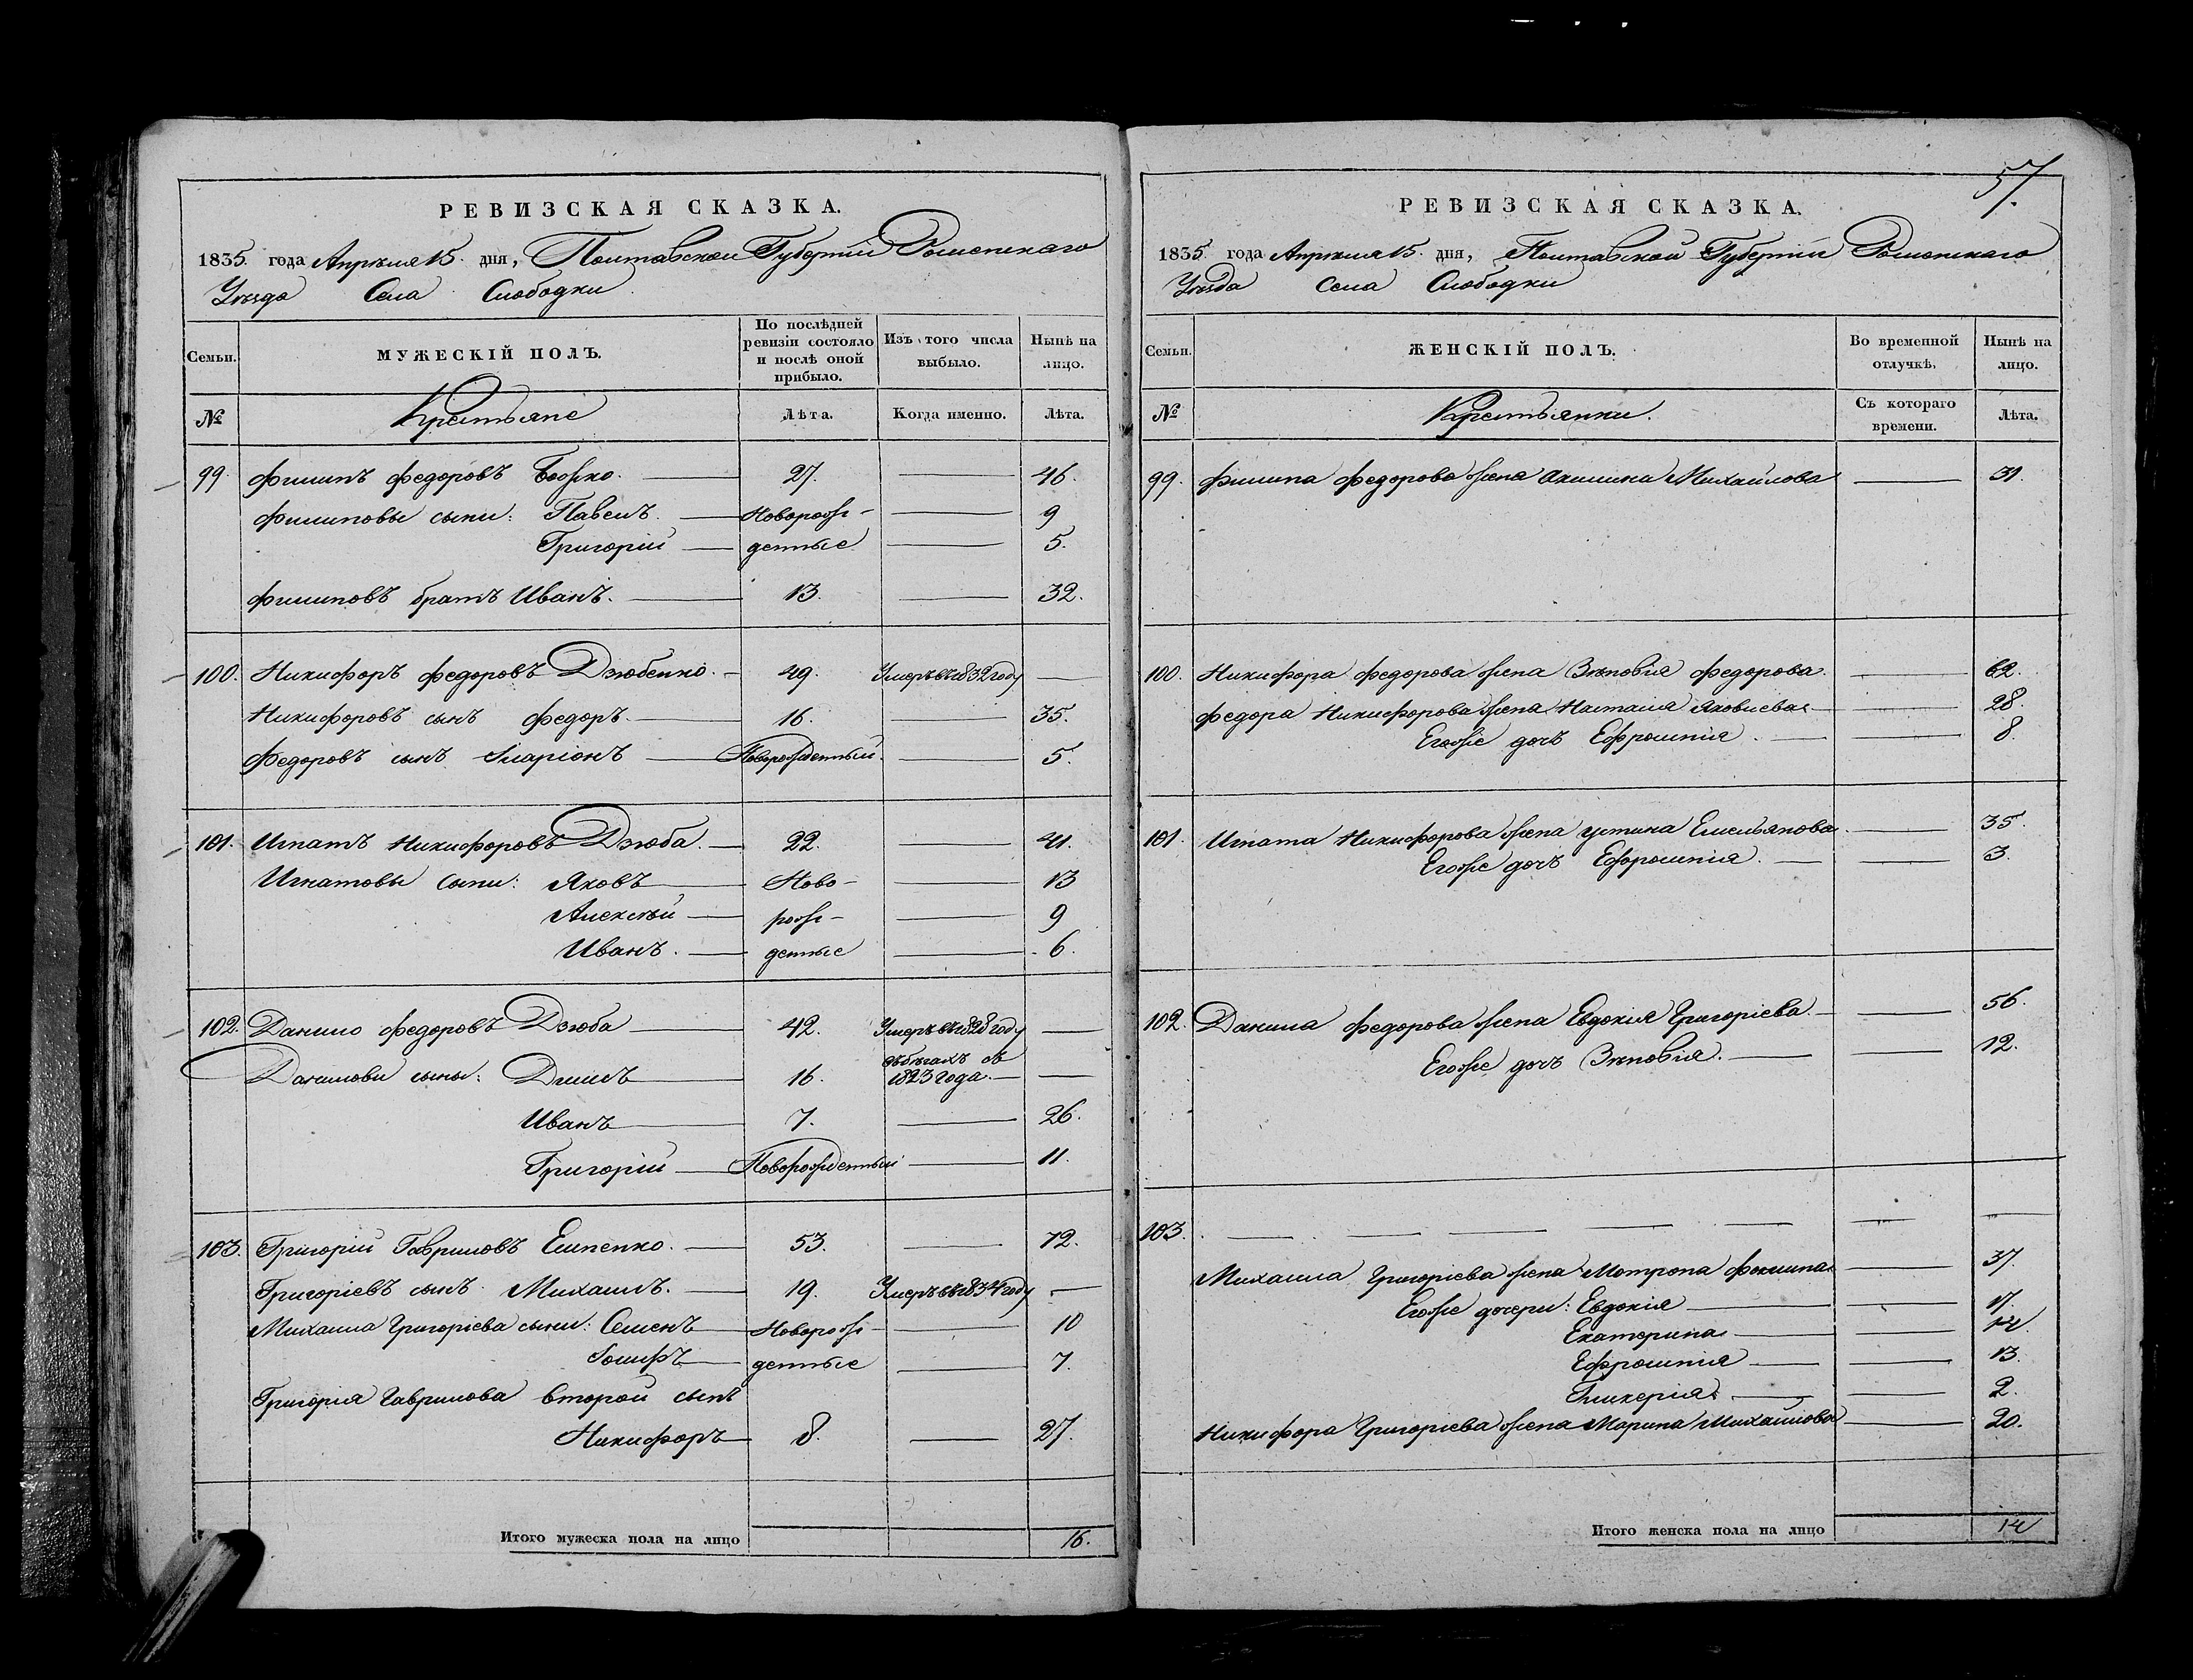 РЕВИЗСКАЯ СКАЗКА.
1835 года Апрѣля 15 дня, Полтавской Губерніи Роменскаго
Уѣзда Села Слободки
Семьи.
МУЖЕСКІЙ ПОЛЪ.
По послѣдней ревизіи состояло и послѣ оной прибыло.
Изъ того числа выбыло.
Нынѣ на лицо.
№
Крестьяне
Лѣта.
Когда именно.
Лѣта.
99. Филипъ Федоровъ Божко. 27. 46.
Филиповы сыни: ПавелъНоворож- 9
Григорій денные 5.
Филиповъ братъ Иванъ. 13. 32.
100. Никифоръ Федоровъ Дзюбенко. 49. Умеръ въ 1832 году
Никифоровъ сынъ Федоръ. 16. 35.
Федоровъ сынъ Іларіонъ Новорожденный. 5.
101. Игнатъ Никифоровъ Дзюба. 22. 41.
Игнатовы сыни: Яковъ Ново- 13
Алексѣй рож- 9
Иванъ. денные 6.
102. Данило Федоровъ Дзюба 42. Умеръ въ 1828 году
въ бѣгахъ съ
Данилови сыны: 16. 1823 года.
Иванъ 7. 26.
Григорій Новорожденный 11.
103. Григорій Гавриловъ Еппенко. 53. 72.
Григоріевъ сынъ Михаилъ. 19. Умеръ въ 1834 году
Михаила Григоріева сыни: Семенъ Новорож- 10
Іосифъ денные 7.
Григорія Гаврилова второй сынъ
Никифоръ 8. 27.
Итого мужеска пола на лицо 16.
57.
РЕВИЗСКАЯ СКАЗКА.
1835 года Апрѣля 15 дня, Полтавской Губерніи Роменскаго
Уѣзда Села Слободки
Семьи.
ЖЕНСКІЙ ПОЛЪ.
Во временной отлучкѣ.
Нынѣ на лицо.
№
Крестьянки.
Съ котораго времени.
Лѣта.
99. Филипа Федорова жена Акилина Михайлова 31.
100. Никифора Федорова жена Зѣновія Федорова. 62.
Федора Никифорова жена Наталія Яковлева 28.
Егоже дочь Ефросинія. 8.
101. Игната Никифорова жена Устина Емельянова. 35.
Егоже дочь Ефросинія. 3.
102. Данила Федорова жена Евдокія Григоріева 56.
Егоже дочь Зѣновія. 12.
103.
Михаила Григоріева жена Мотрона Фомина 37.
Егоже дочери: Евдокія 17.
Екатерина 14.
Ефросинія 13.
Гликерія. 2.
Никифора Григоріева жена Марина Михайлова 20.
Итого женска пола на лицо 14